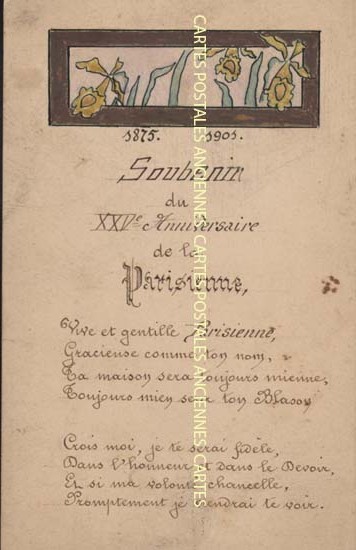 1875. 1901.
Souvenir
du
XXVe Anniversaire
de la
Parisienne,
Vive et gentille Parisienne,
Gracieuse comme ton nom,
Ta maison sera toujours mienne,
Toujours mien sera ton Blason
Crois moi, je te serai fidèle,
Dans l'honneur et dans le Devoir,
Et si ma volonté chancelle,
Promptement je viendrai te voir.
CARTES POSTALES ANCIENNES CARTES POSTALES ANCIENNES CARTES